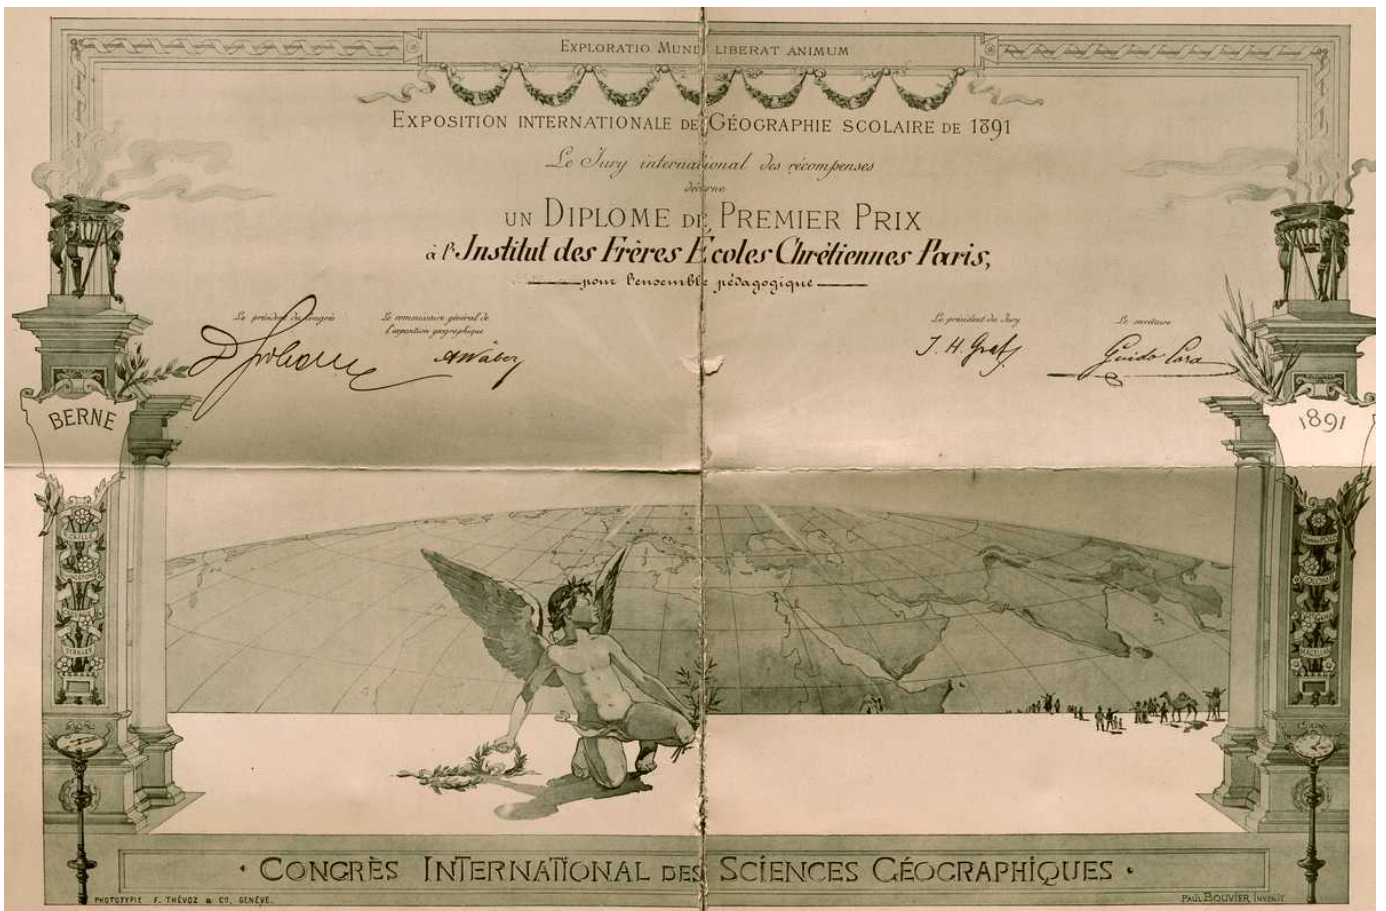 EXPLORATIO MUNDI LIBERAT ANIMUM
EXPOSITION INTERNATIONALE DE GÉOGRAPHIE SCOLAIRE DE 1891
Le Jury international des récompenses
décerne
UN DIPLOME DE PREMIER PRIX
à l'Institut des Frères Écoles Chrétiennes Paris,
pour l'ensemble pédagogique
Le président du Congrès
Le commissaire général de
l'exposition géographique
Le président du Jury
Le secrétaire
J. H. Graf
Guido Cora
BERNE
1891
CAILLÉ
STANLEY
MARCO POLO
COLOMB
MAGELLAN
CONGRÈS INTERNATIONAL DES SCIENCES GÉOGRAPHIQUES
PHOTOTYPIE F. THÉVOZ & Cie, GENÈVE.
PAUL BOUVIER INVENIT